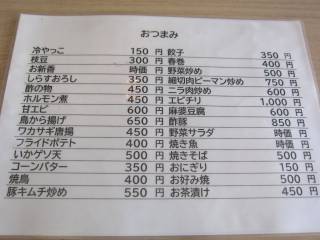 おつまみ
冷やっこ 150 円 餃子 350 円
枝豆 300 円 春巻 400 円
お新香 時価 円 野菜炒め 500 円
しらすおろし 350 円 細切肉ピーマン炒め 750 円
酢の物 450 円 ニラ肉炒め 600 円
ホルモン煮 450 円 エビチリ 1,000 円
甘エビ 600 円 麻婆豆腐 600 円
鳥から揚げ 650 円 酢豚 850 円
ワカサギ唐揚 450 円 野菜サラダ 時価 円
フライドポテト 400 円 焼き魚 時価 円
いかゲソ天 500 円 焼きそば 500 円
コーンバター 350 円 おにぎり 150 円
焼鳥 400 円 お好み焼 500 円
豚キムチ炒め 550 円 お茶漬け 450 円